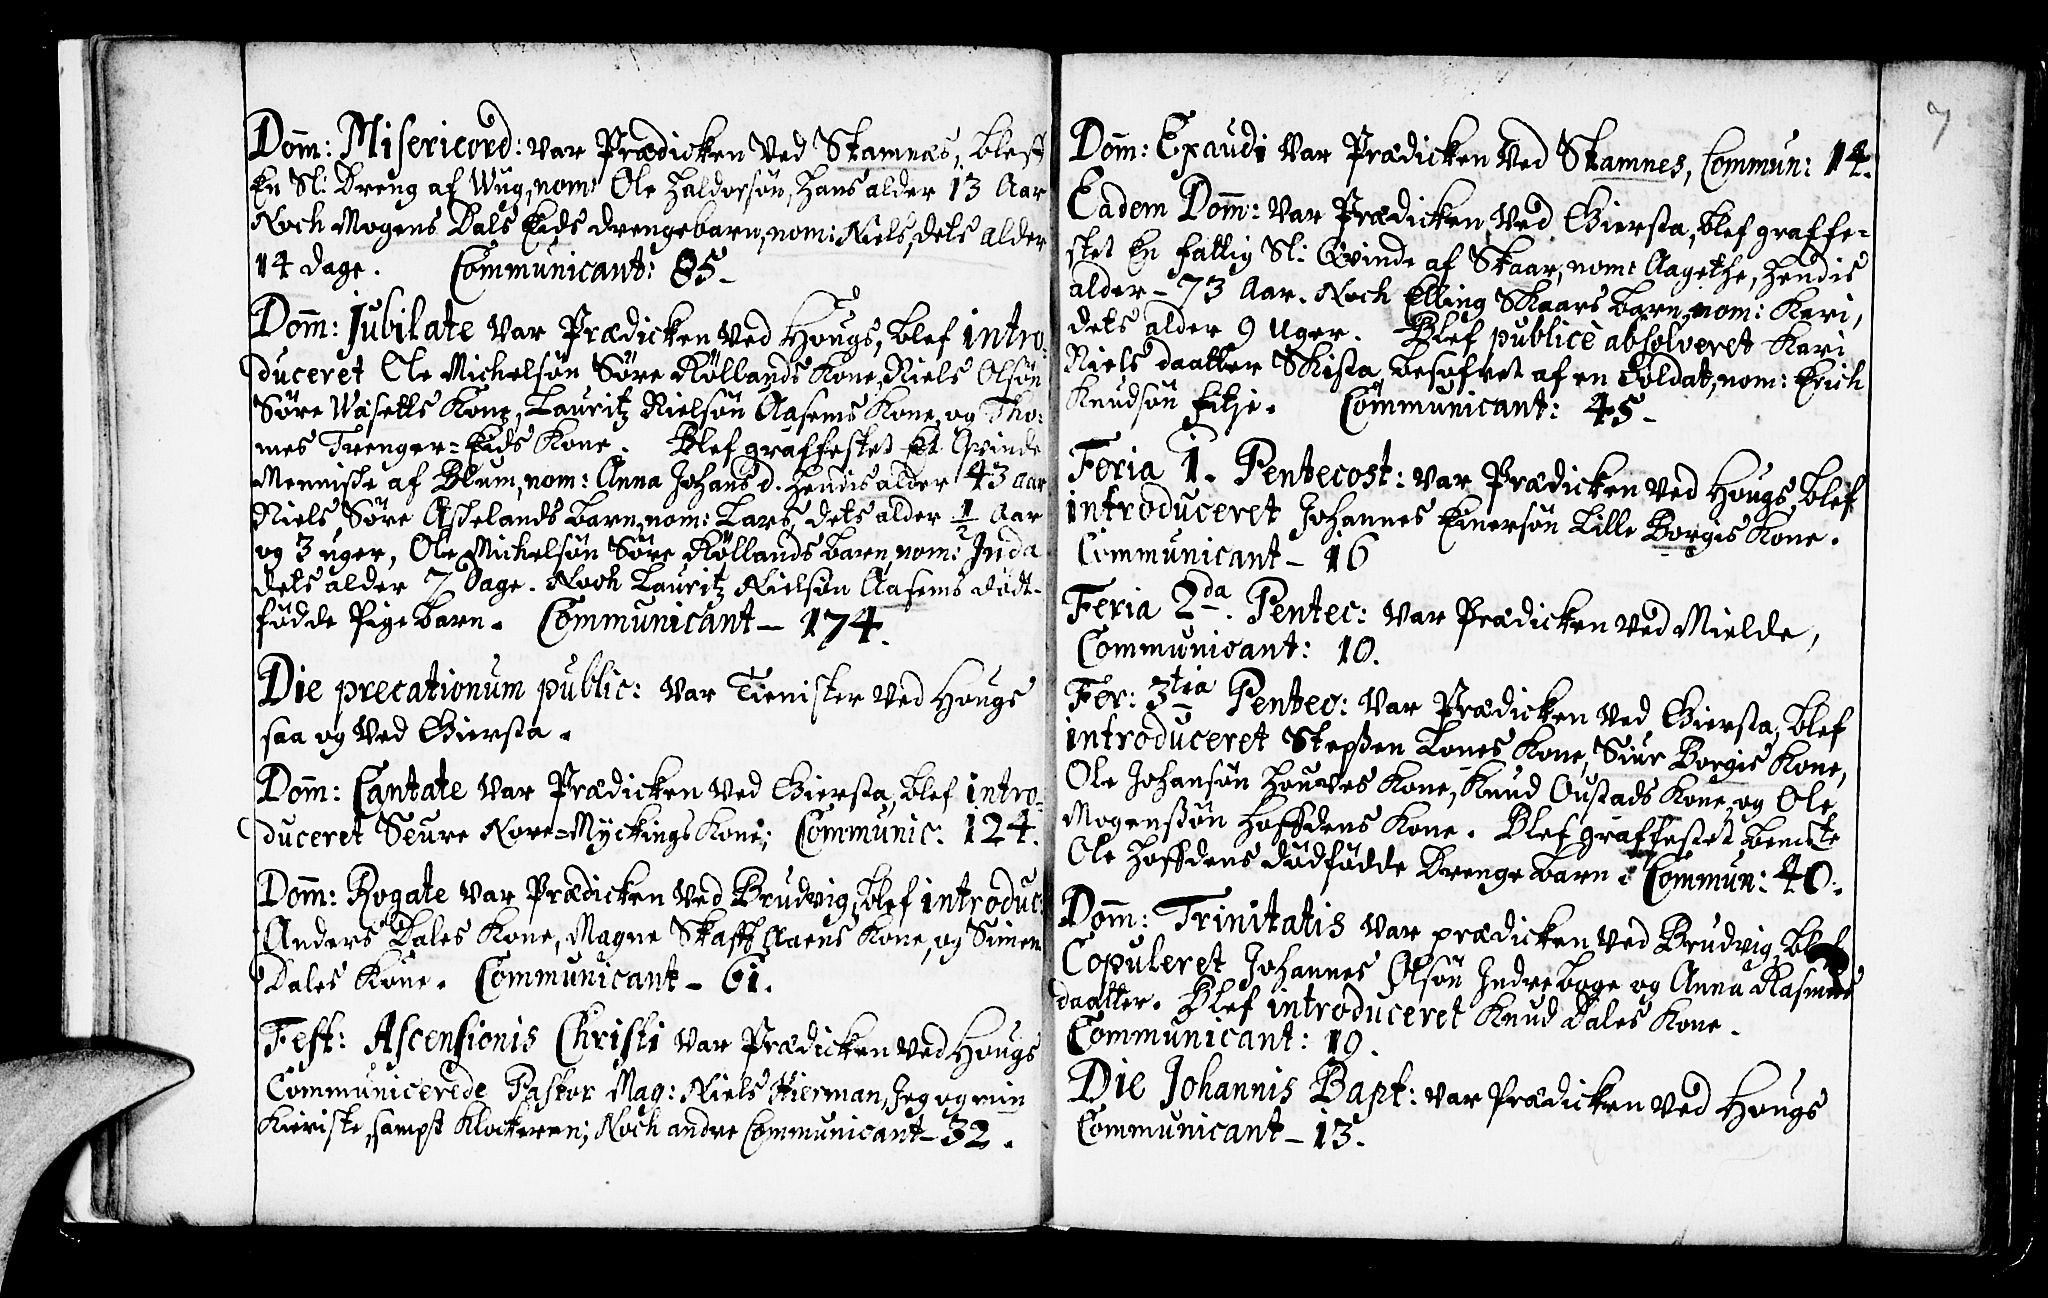 Dom̄: Misericord: var Prædicken ved Stamnæs, blef
En Sl: Dreng af Wug, nom: Ole Haldorsøn, hans alder 13 Aar
Noch Mogens Dals Eids drengebarn, nom: Niels, dets alder
14 dage. Communicant: 85-
Dom̄: Jubilate var Prædicken ved Hougs, blef intro-
duceret Ole Michelsøn Søre Röllands Kone, Niels Olsøn
Søre Wasetls Kone, Lauritz Nielsøn Aasems Kone, og Tho:
mes Trenger=Eids Kone. Blef graffestet Et Qvinde
Menniske af Blum, nom: Anna Johans d. hendis alder 43 Aar
Niels Søre Askelands barn, nom: Lars, dets alder 1/2 Aar
og 3 uger, Ole Michelsøn Søre Röllands barn, nom: Inda
dets alder 7 Dage. Noch Lauritz Nielsøn Aasems dødt-
födde Pige barn. Communicant- 174.
Die precationum public: var Tienister ved Hougs
saa og ved Giersta.
Dom̄: Cantate var Prædicken ved Giersta, blef intro-
duceret Seure Nore=Myckings Kone; Communic: 124.
Dom̄: Rogate var Prædicken ved Brudvig, blef introduc:
Anders Dales Kone, Magne Skafthaaens Kone, og Simen
Dales Kone. Communicant- 61.
Fest: Ascensionis Christi var Prædicken ved Hougs
Communicerede Pastor Mag: Niels Hierman, Jeg og min
Kieriste, sampt Klockeren; Noch andre Communicant- 32.
7
Dom̄: Exaudi var Prædicken ved Stamnes, Commun: 14.
Eadem Dom̄: var Prædicken ved Giersta, blef graffe=
stet En fattig Sl: Qvinde af Skaar, nom: Aagethe, hendis
alder- 73 Aar. Noch Elling Skaars barn, nom: Kari,
dets alder 9 Uger. Blef publicè absolveret Kari
Niels daatter Skista besofvet af en Soldat, nom: Erich
Knudsøn Eitje. Communicant: 45-
Feria 1. Pentecost: var Prædicken ved Hougs, blef
introduceret Johannes Einersøn Lille Borgis Kone.
Communicant- 16
Feria 2da. Pentec: var Prædicken ved Mielde,
Communicant: 10.
Fer: 3tia Pentec: var Prædicken ved Giersta, blef
introduceret Stephen Lones Kone, Siur Borgis Kone,
Ole Johansøn Houves Kone, Knud Oustads Kone, og Ole
Mogensøn Hoffdens Kone. Blef graffestet bemte
Ole Hoffdens dödfödde Drenge barn. Commun: 40.
Dom̄: Trinitatis var prædicken ved Brudvig, Blef
Copuleret Johannes Olsøn Indre boge og Anna Rasmus
daatter. Blef introduceret Knud Dales Kone.
Communicant: 10.
Die Johannis Bapt: var Prædicken ved Hougs
Communicant- 13.